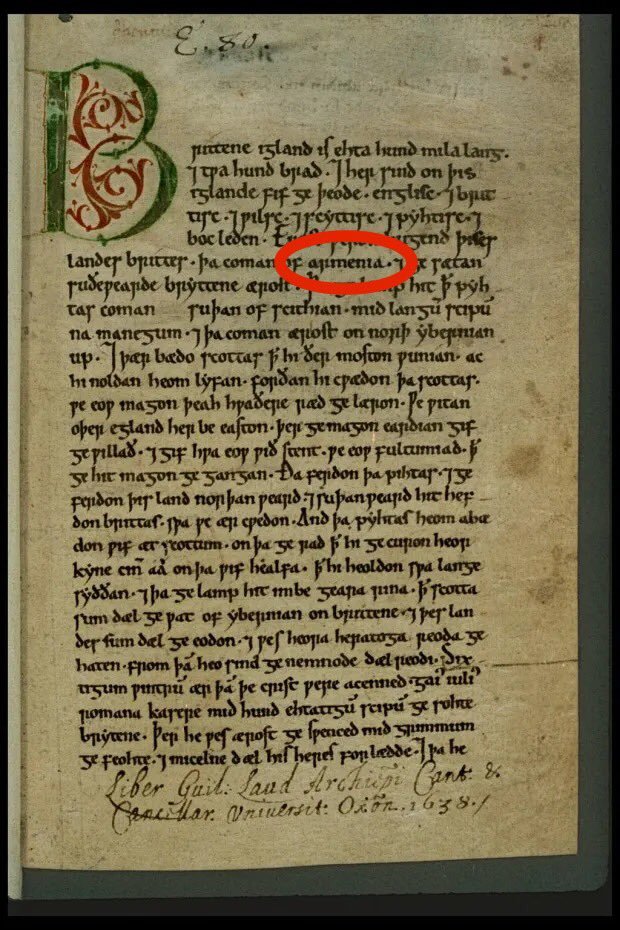 E. 80.
Brittene igland is ehta hund mila lang.
⁊ tƿa hund brad. ⁊ her sind on þis
iglande fif ge þeode. englisc. ⁊ brit
tisc. ⁊ ƿilsc. ⁊ scyttisc. ⁊ pyhtisc. ⁊
boc leden. þises
landes brittes. þa coman of armenia. ⁊ ge sætan
suðeƿearde bryttene ærost. hit ꝥ pyh
tas coman suþan of scithian. mid langū scipū
na manegum. ⁊ þa coman ærost on norþ ybernian
up. ⁊ þær bædo scottas ꝥ hi ðer moston ƿunian. ac
hi noldan heom lyfan. forðan hi cƿædon þa scottas.
ƿe eoƿ magon þeah hƿaðere ræd ge læron. Ƿe ƿitan
oþer egland her be easton. þer ge magon eardian gif
ge ƿillað. ⁊ gif hƿa eoƿ ƿið stent. ƿe eoƿ fultumiad. ꝥ
ge hit magon ge gangan. Ða ferdon þa pihtas. ⁊ ge
ferdon þis land norþan ƿeard. ⁊ suþan ƿeard hit hef
don brittas. sƿa ƿe ær cƿedon. And þa pyhtas heom abæ
don ƿif æt scottum. on þa ge rad ꝥ hi ge curon heor
kyne cīn aá on þa ƿif healfa. ꝥ hi heoldon sƿa lange
syððan. ⁊ þa ge lamp hit imbe geara rina. ꝥ scotta
sum dæl ge ƿat of ybernian on brittene. ⁊ þes lan
des sum dæl ge eodon. ⁊ ƿes heora heratoga reoda ge
haten. from þā heo sind ge nemnode dæl reodi. Six
tigum ƿintrū ær þā þe crist ƿere acenned. gaiˀ iuliˀ
romana kasere mid hund ehtatigū scipū ge sohte
brytene. Þer he ƿes ærost ge sƿenced mid grimmum
ge feohte. ⁊ micelne dæl his heres forlædde. ⁊ þa he
Liber Guil: Laud Archiepi Cant: &
Cancillar. Universit: Oxōn. 1638./